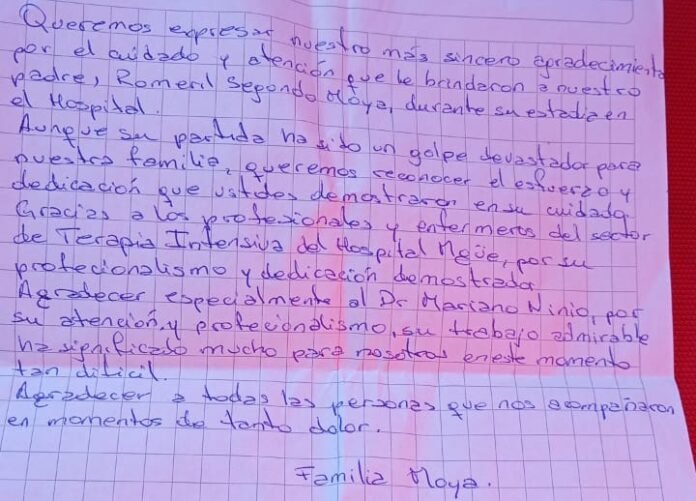 Queremos expresar nuestro más sincero agradecimiento
por el cuidado y atención que le brindaron a nuestro
padre, Romeril Segondo Moya, durante su estadia en
el Hospital.
Aunque su partida ha sido un golpe devastador para
nuestra familia, queremos reconocer el esfuerzo y
dedicación que ustedes demostraron en su cuidado.
Gracias a los profesionales y enfermeros del sector
de Terapia Intensiva del Hospital Ngüe, por su
profecionalismo y dedicación demostrada.
Agradecer especialmente al Dr Mariano Ninio, por
su atención y profecionalismo, su trabajo admirable
ha significado mucho para nosotros en este momento
tan dificil.
Agradecer a todas las personas que nos acompañaron
en momentos de tanto dolor.
Familia Moya.